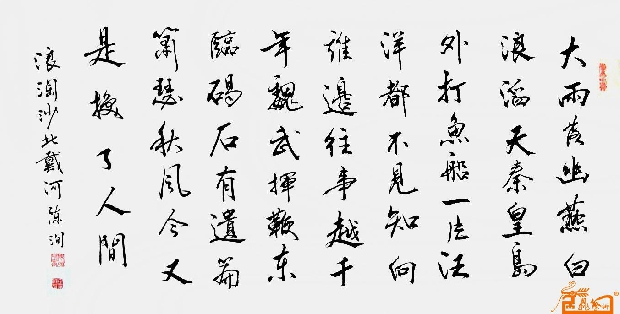 大雨落幽燕白
浪滔天秦皇島
外打魚船一片汪
洋都不見知向
誰邊往事越千
年魏武揮鞭東
臨碣石有遺篇
蕭瑟秋風今又
是換了人間
浪淘沙北戴河陈